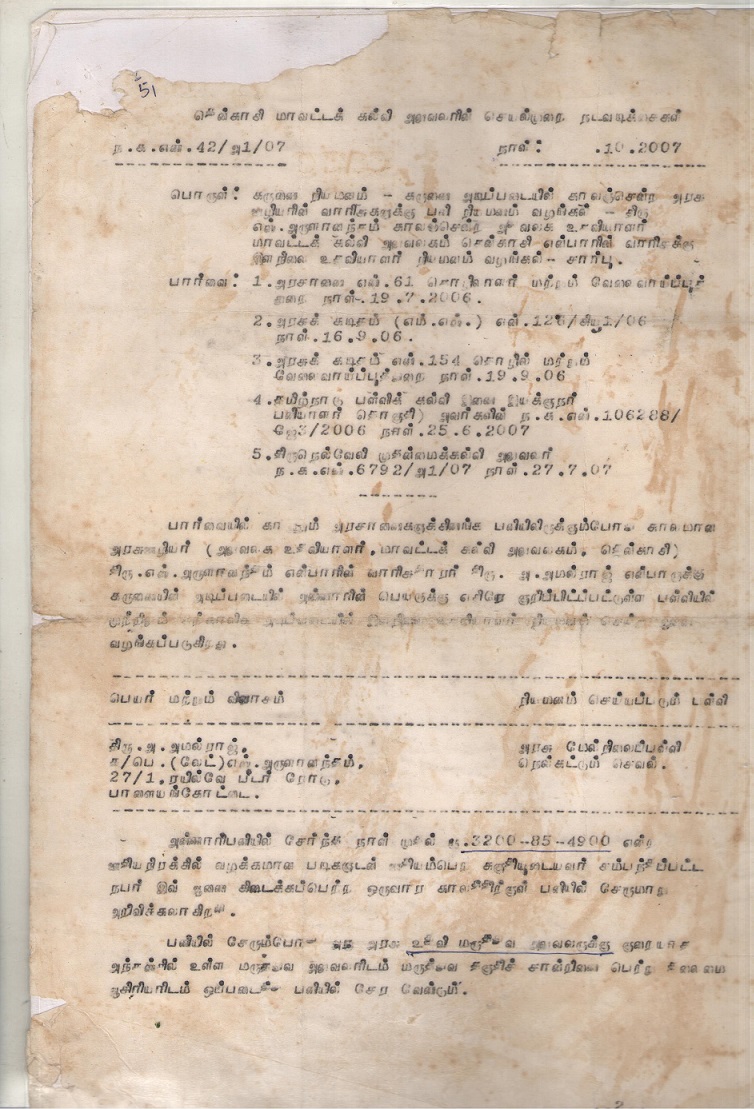 51
தென்காசி மாவட்டக் கல்வி அலுவலரின் செயல்முறை நடவடிக்கைகள்
ந.க.எண்.42/அ1/07 நாள்: .10.2007
பொருள்: கருணை நியமனம் - கருணை அடிப்படையில் காலஞ்சென்ற அரசு
ஊழியரின் வாரிசுகளுக்கு பணி நியமனம் வழங்கல் - திரு
எஸ்.அருளானந்தம் காலஞ்சென்ற அலுவலக உதவியாளர்
மாவட்டக் கல்வி அலுவலகம் தென்காசி என்பாரின் வாரிசுக்கு
இளநிலை உதவியாளர் நியமனம் வழங்கல் - சார்பு.
பார்வை: 1.அரசாணை எண்.61 தொழிலாளர் மற்றும் வேலைவாய்ப்புத்
துறை நாள்-19.7.2006.
2.அரசுக் கடிதம் (எம்.எஸ்.) எண்.126/கியூ1/06
நாள்.16.9.06.
3.அரசுக் கடிதம் எண்.154 தொழில் மற்றும்
வேலைவாய்ப்புத்துறை நாள்.19.9.06
4.தமிழ்நாடு பள்ளிக் கல்வி இணை இயக்குநர்
பணியாளர் தொகுதி) அவர்களின் ந.க.எண்.106288/
ஜே3/2006 நாள்.25.6.2007
5.திருநெல்வேலி முதன்மைக்கல்வி அலுவலர்
ந.க.எண்.6792/அ1/07 நாள்.27.7.07
பார்வையில் காணும் அரசாணைகளுக்கிணங்க பணியிலிருக்கும்போது காலமான
அரசுஊழியர் (அலுவலக உதவியாளர்,மாவட்டக் கல்வி அலுவலகம், தென்காசி)
திரு.எஸ்.அருளானந்தம் என்பாரின் வாரிசுதாரர் திரு. அ.அமல்ராஜ் என்பாருக்கு
கருணையின் அடிப்படையில் அன்னாரின் பெயருக்கு எதிரே குறிப்பிட்டப்பட்டுள்ள பள்ளியில்
முற்றிலும் தற்காலிக அடிப்படையில்
வழங்கப்படுகிறது.
பெயர் மற்றும் விலாசம் நியமனம் செய்யப்படும் பள்ளி
திரு.அ.அமல்ராஜ், அரசு மேல்நிலைப்பள்ளி
த/பெ.(லேட்)எஸ்.அருளானந்தம், நெல்கட்டும் செவல்.
27/1,ரயில்வே பீடர் ரோடு,
பாளையங்கோட்டை.
அன்னார்பணியில் சேர்ந்த நாள் முதல் ரூ.3200-85-4900 என்ற
ஊதியநிரக்கில் வழக்கமான படிகளுடன் ஊதியம்பெற தகுதியுடையவர் சம்பந்தப்பட்ட
நபர் இவ் ஆணை கிடைக்கப்பெற்ற ஒருவார காலத்திற்குள் பணியில் சேருமாறு
அறிவிக்கலாகிறது.
பணியில் சேரும்போது அரசு உதவி மருத்துவ அலுவலருக்கு குறையாத
அந்தஸ்தில் உள்ள மருத்துவ அலுவலரிடம் மருத்துவ தகுதிச் சான்றினை பெற்று தலைமை
ஆசிரியரிடம் ஒப்படைத்து பணியில் சேர வேண்டும்.